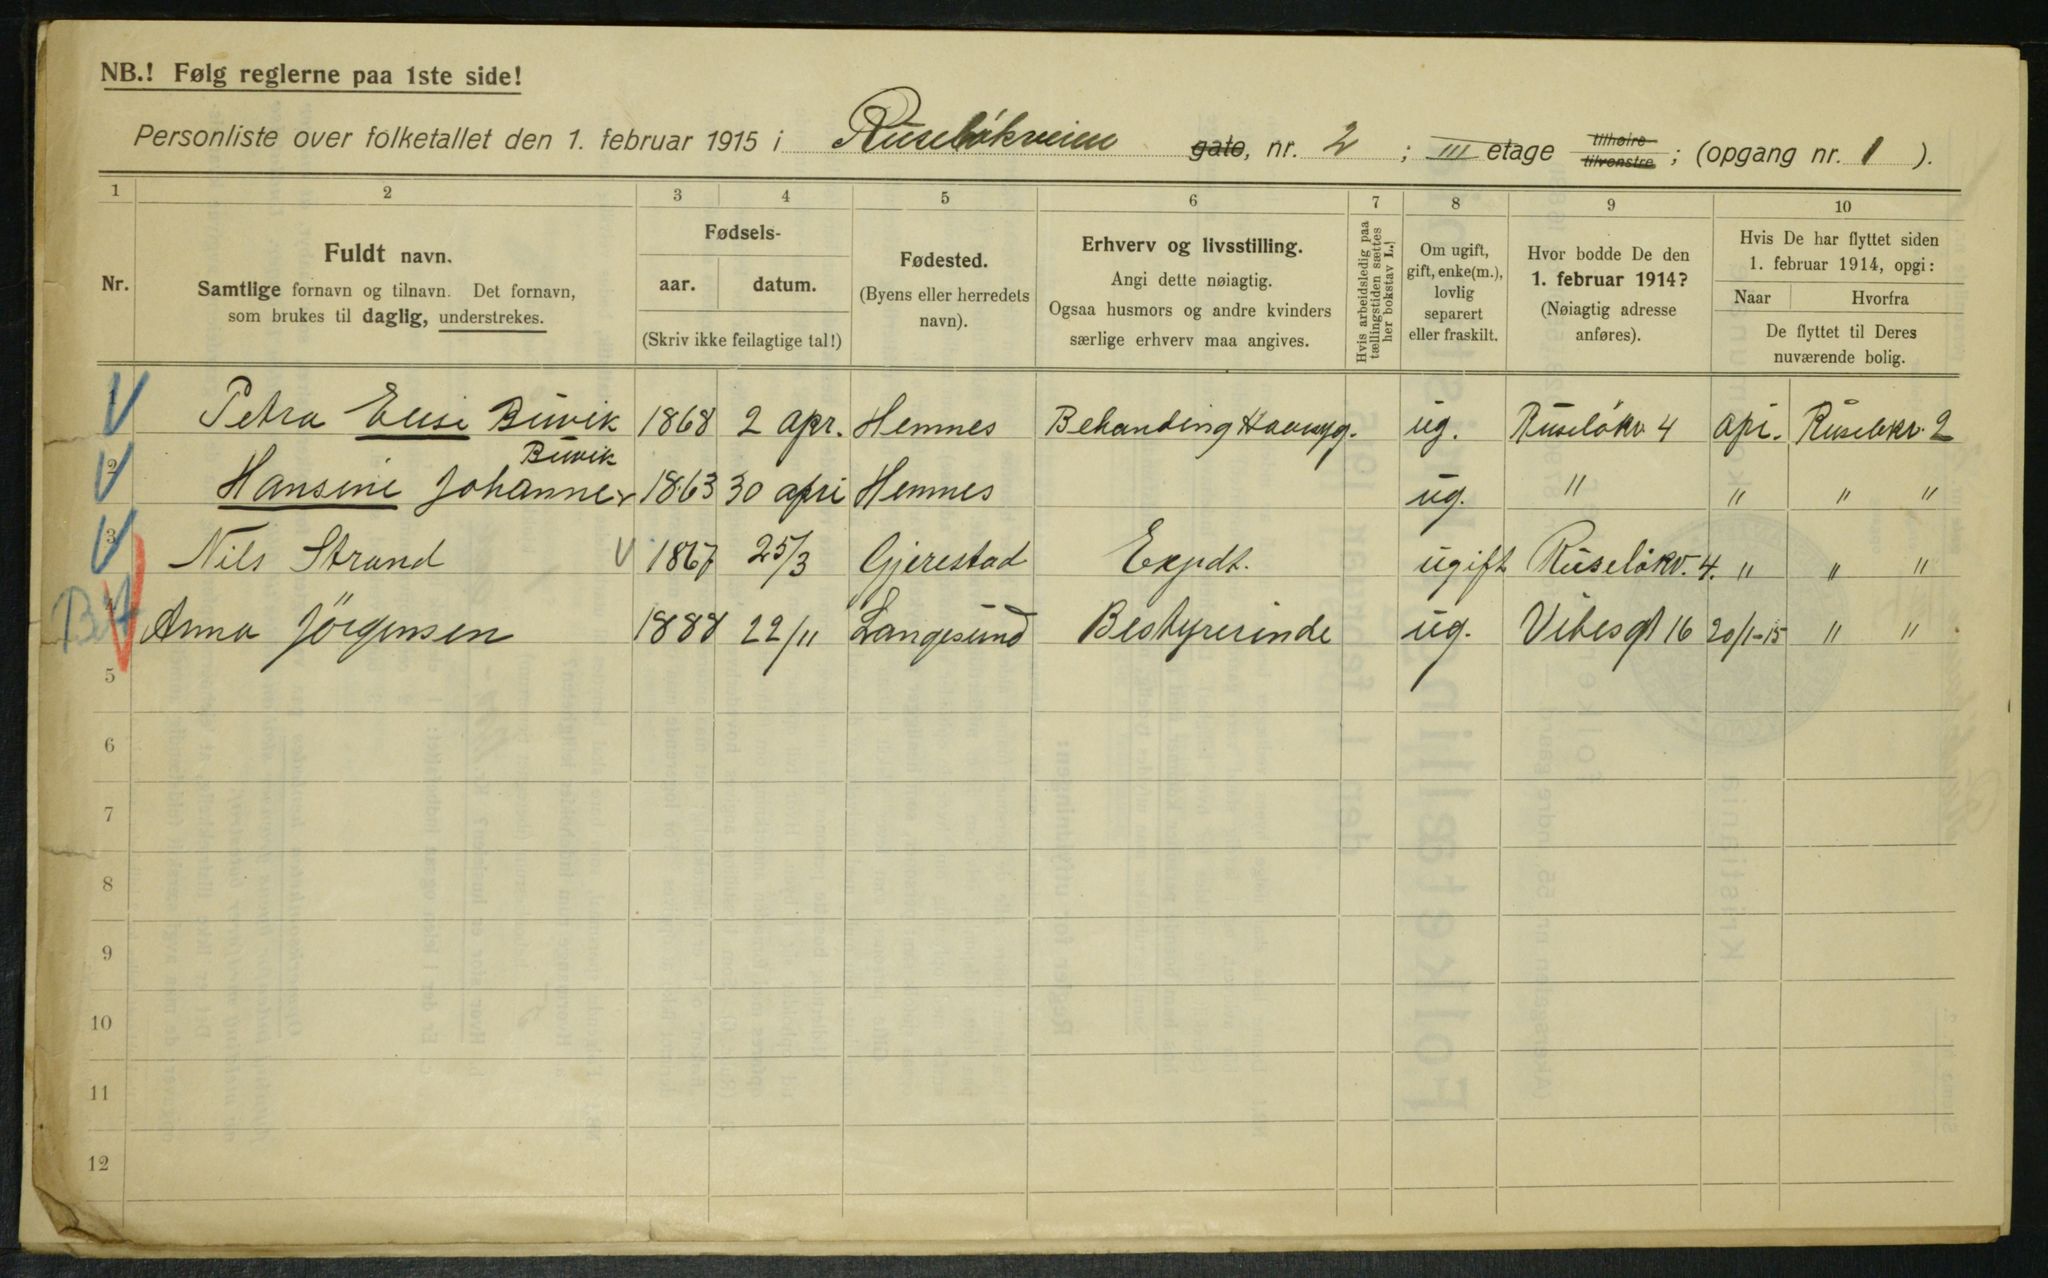 NB.! Følg reglerne paa 1ste side!
Personliste over folketallet den 1. februar 1915 i Ruseløkveien gate, nr. 2 ; III etage tilhøire tilvenstre ; (opgang nr. 1 ).
1 2 3 4 5 6 7 8 9 10
Nr.
Fuldt navn.
Samtlige fornavn og tilnavn. Det fornavn,
som brukes til daglig, understrekes.
Fødsels-
aar. datum.
(Skriv ikke feilagtige tal!)
Fødested.
(Byens eller herredets
navn).
Erhverv og livsstilling.
Angi dette nøiagtig.
Ogsaa husmors og andre kvinders
særlige erhverv maa angives.
Hvis arbeidsledig paa
tællingstiden sættes
her bokstav L.)
Om ugift,
gift, enke(m.),
lovlig
separert
eller fraskilt.
Hvor bodde De den
1. februar 1914?
(Nøiagtig adresse
anføres).
Hvis De har flyttet siden
1. februar 1914, opgi:
Naar Hvorfra
De flyttet til Deres
nuværende bolig.
Petra Elise Buvik 1868 2 apr. Hemnes ug. Ruseløkv 4 apr. Ruseløkv. 2
Buvik
2 Hansine Johanne 1863 30 apri Hemnes ug. " " " "
3 Nils Strand 1867 25/3 Gjerestad Expdt. ugift Ruseløkv. 4. " " "
Anna Jörgensen 1888 22/11 Langesund Bestyrerinde ug. Vibesgt 16 20/1-15 " "
5
6
7
8
9
10
11
12